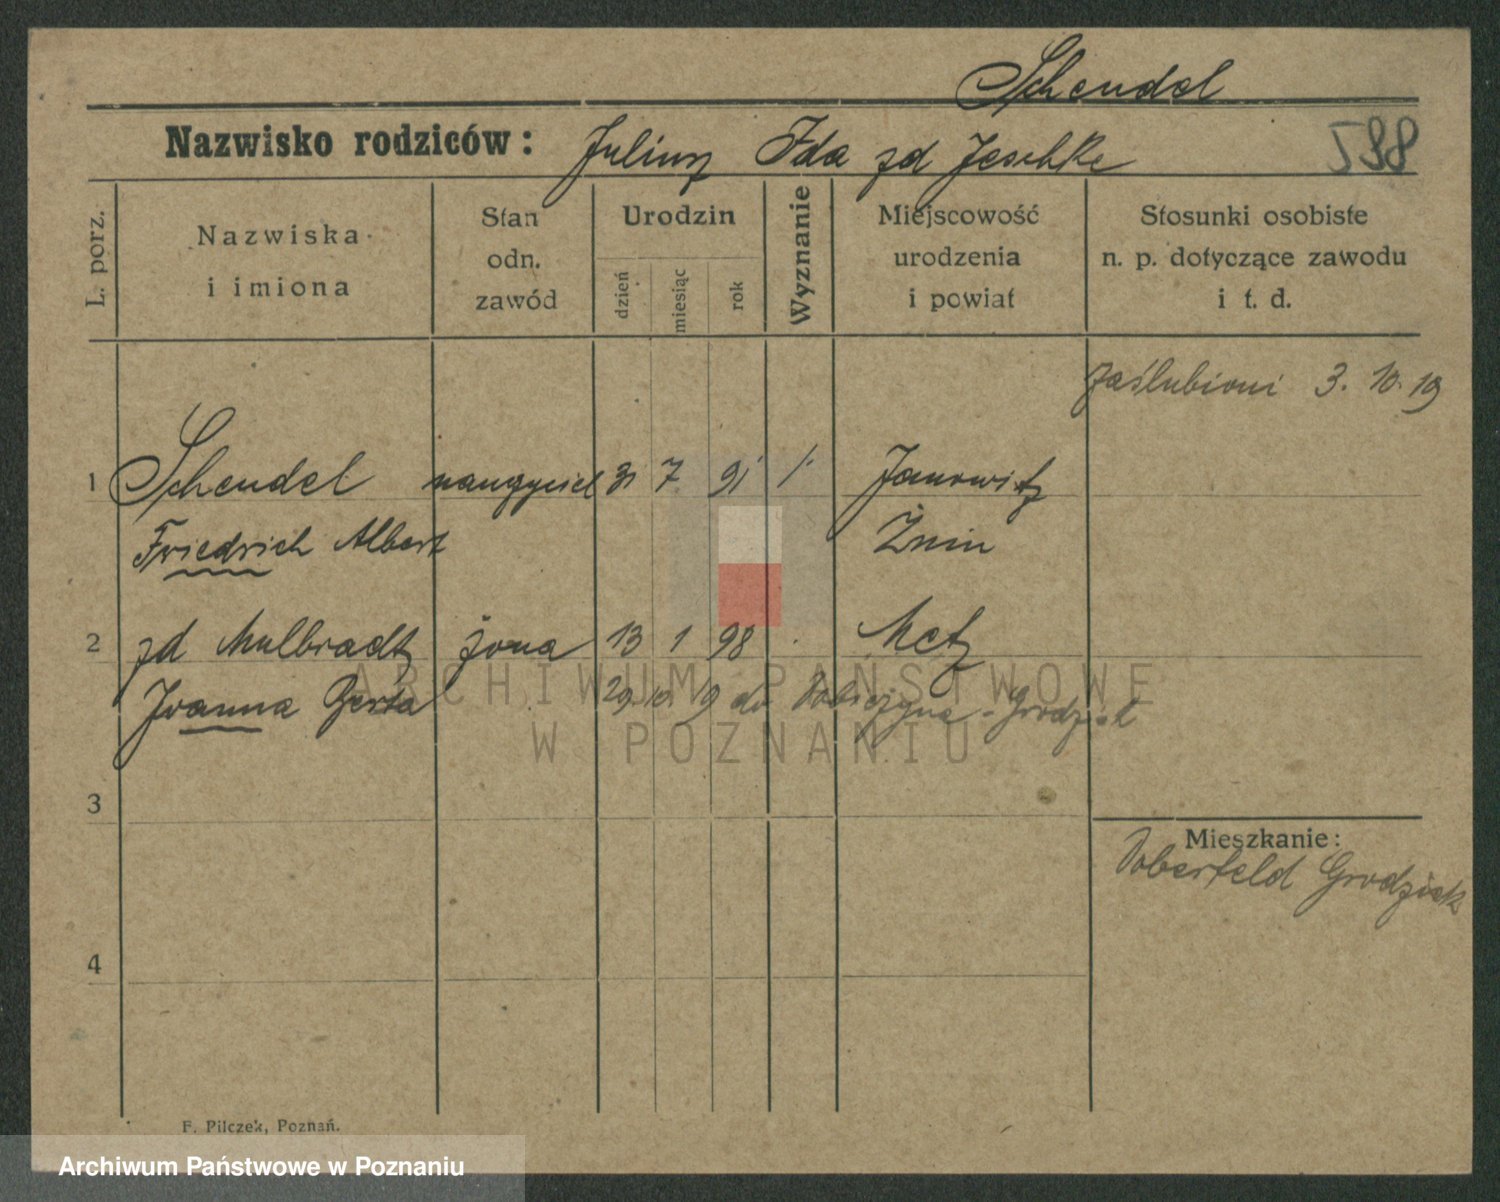 Schendel
Nazwisko rodziców: Juliusz Ida zd Jeschke 598
L. porz.
Nazwiska i imiona
Stan odn. zawód
Urodzin
dzień
miesiąc
rok
Wyznanie
Miejscowość urodzenia i powiat
Stosunki osobiste n. p. dotyczące zawodu i t. d.
zaślubioni 3. 10. 19
1 Schendel nauczyciel 31 7 91 /. Janowitz
Friedrich Albert Żnin
2 zd Mulbradt żona 13 1 98 . Metz
Joanna Berta 29. 10. 19 do Dobieżyna - Grodzisk
ARCHIWUM PAŃSTWOWE
W POZNANIU
3
Mieszkanie:
Doberfeld Grodzisk
4
F. Pilczek, Poznań.
Archiwum Państwowe w Poznaniu